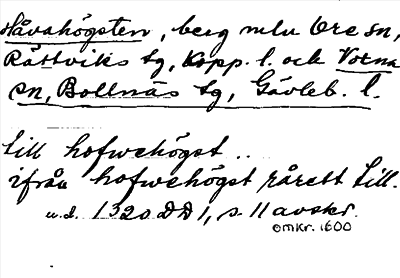 Håvahögsten, berg mlu Ore sn,
Rättviks tg, Kopp. l. och Voxna
sn, Bollnäs tg, Gävleb. l.
till hofwehögst ..
ifrån hofwehögst rårett till.
u.d. 1320 DD1, s. 11 avskr.
omkr. 1600